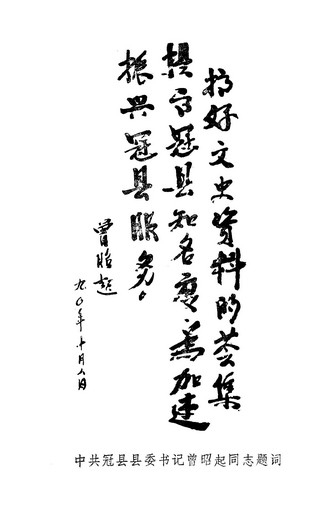 搞好文史资料的荟集
提高冠县知名度，为加速
振兴冠县服务。
曾昭起
九〇年十月八日
中共冠县县委书记曾昭起同志题词